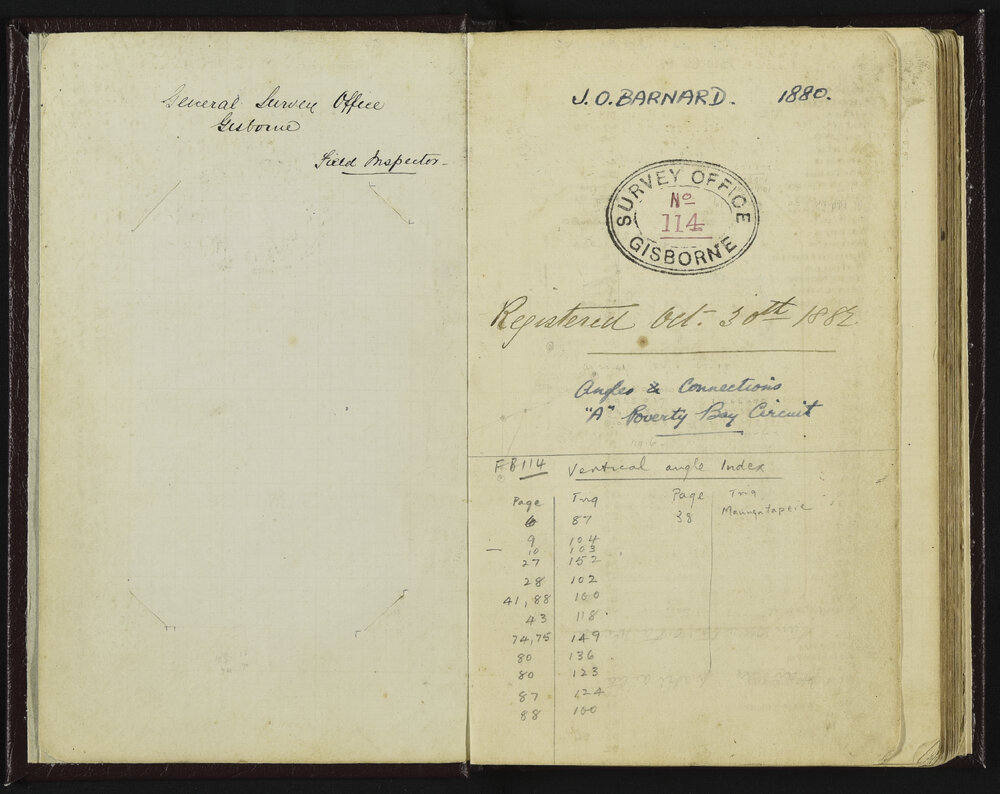 General Survey Office
Gisborne
Field Inspector
J. O. BARNARD. 1880.
SURVEY OFFICE
No
114
GISBORNE
Registered Oct. 30th 1882.
Angles & Connections
"A" Poverty Bay Circuit
FB 114 Vertical angle Index
Page Trig Page Trig
6 87 38 Maungatapere
9 104
10 103
27 152
28 102
41, 88 100
43 118
74, 75 149
80 136
80 123
87 124
88 100